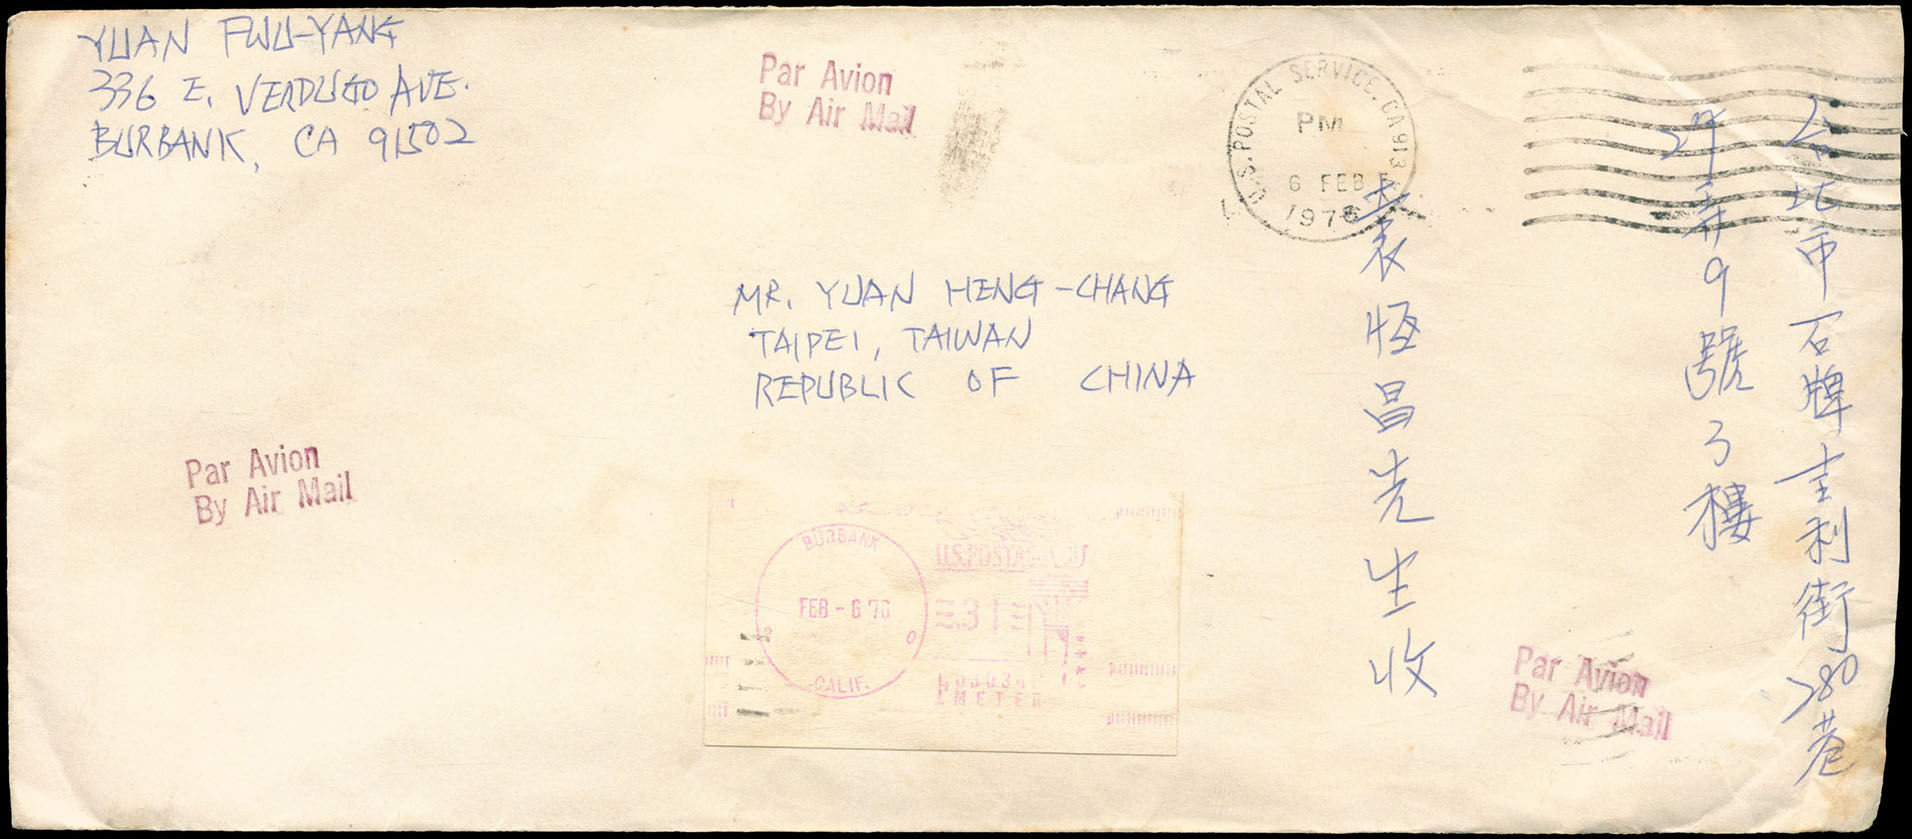 YUAN FWU-YANG
336 E. VERDUGO AVE.
BURBANK, CA 91502
Par Avion
By Air Mail
U.S. POSTAL SERVICE, CA 913
PM
6 FEB
1976
MR. YUAN HENG-CHANG
TAIPEI, TAIWAN
REPUBLIC OF CHINA
台北市石牌吉利街280巷
29弄9號3樓
袁恒昌先生收
Par Avion
By Air Mail
BURBANK
CALIF.
FEB-6'76
U.S. POSTAGE
31
METER
Par Avion
By Air Mail